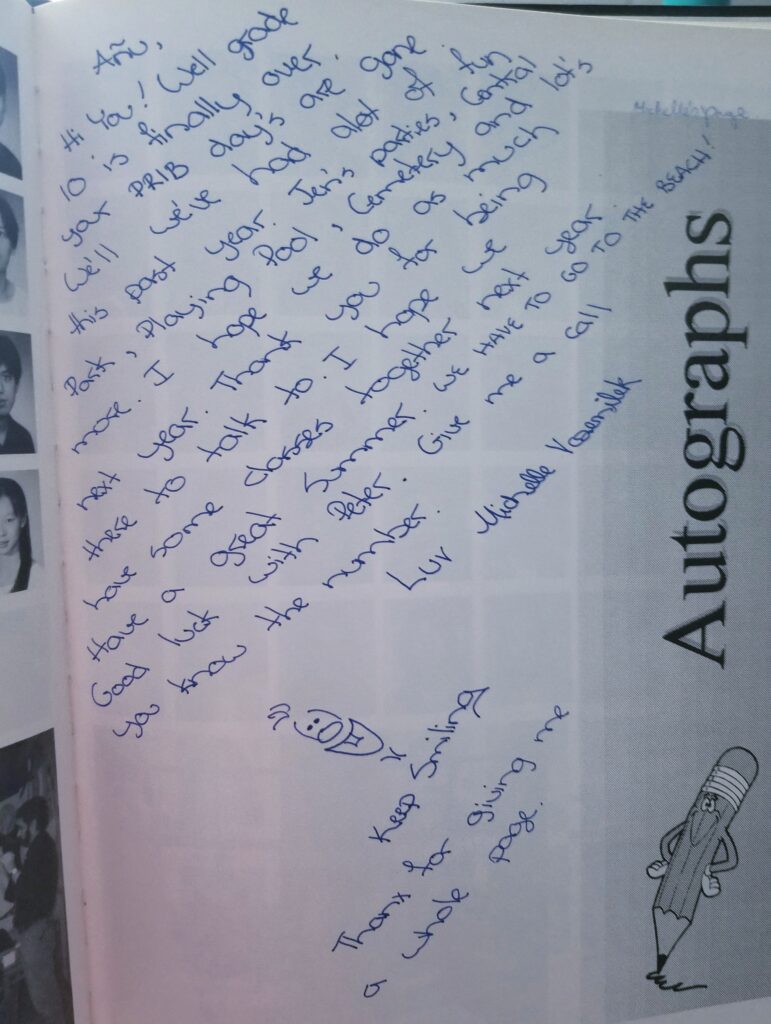 Michelle's page
Autographs
Anu,
Hi You! Well grade
10 is finally over.
your PRIB day's are gone
We'll we've had alot of fun
this past year. Jen's parties, Central
Park, Playing Pool, Cemetery and lot's
more. I hope we do as much
next year. Thank you for being
there to talk to. I hope we
have some classes together next year.
Have a great Summer. WE HAVE TO GO TO THE BEACH!
Good luck with Peter. Give me a call
you know the number.
Luv Michelle
Keep Smiling
Thanx for giving me
a whole page.